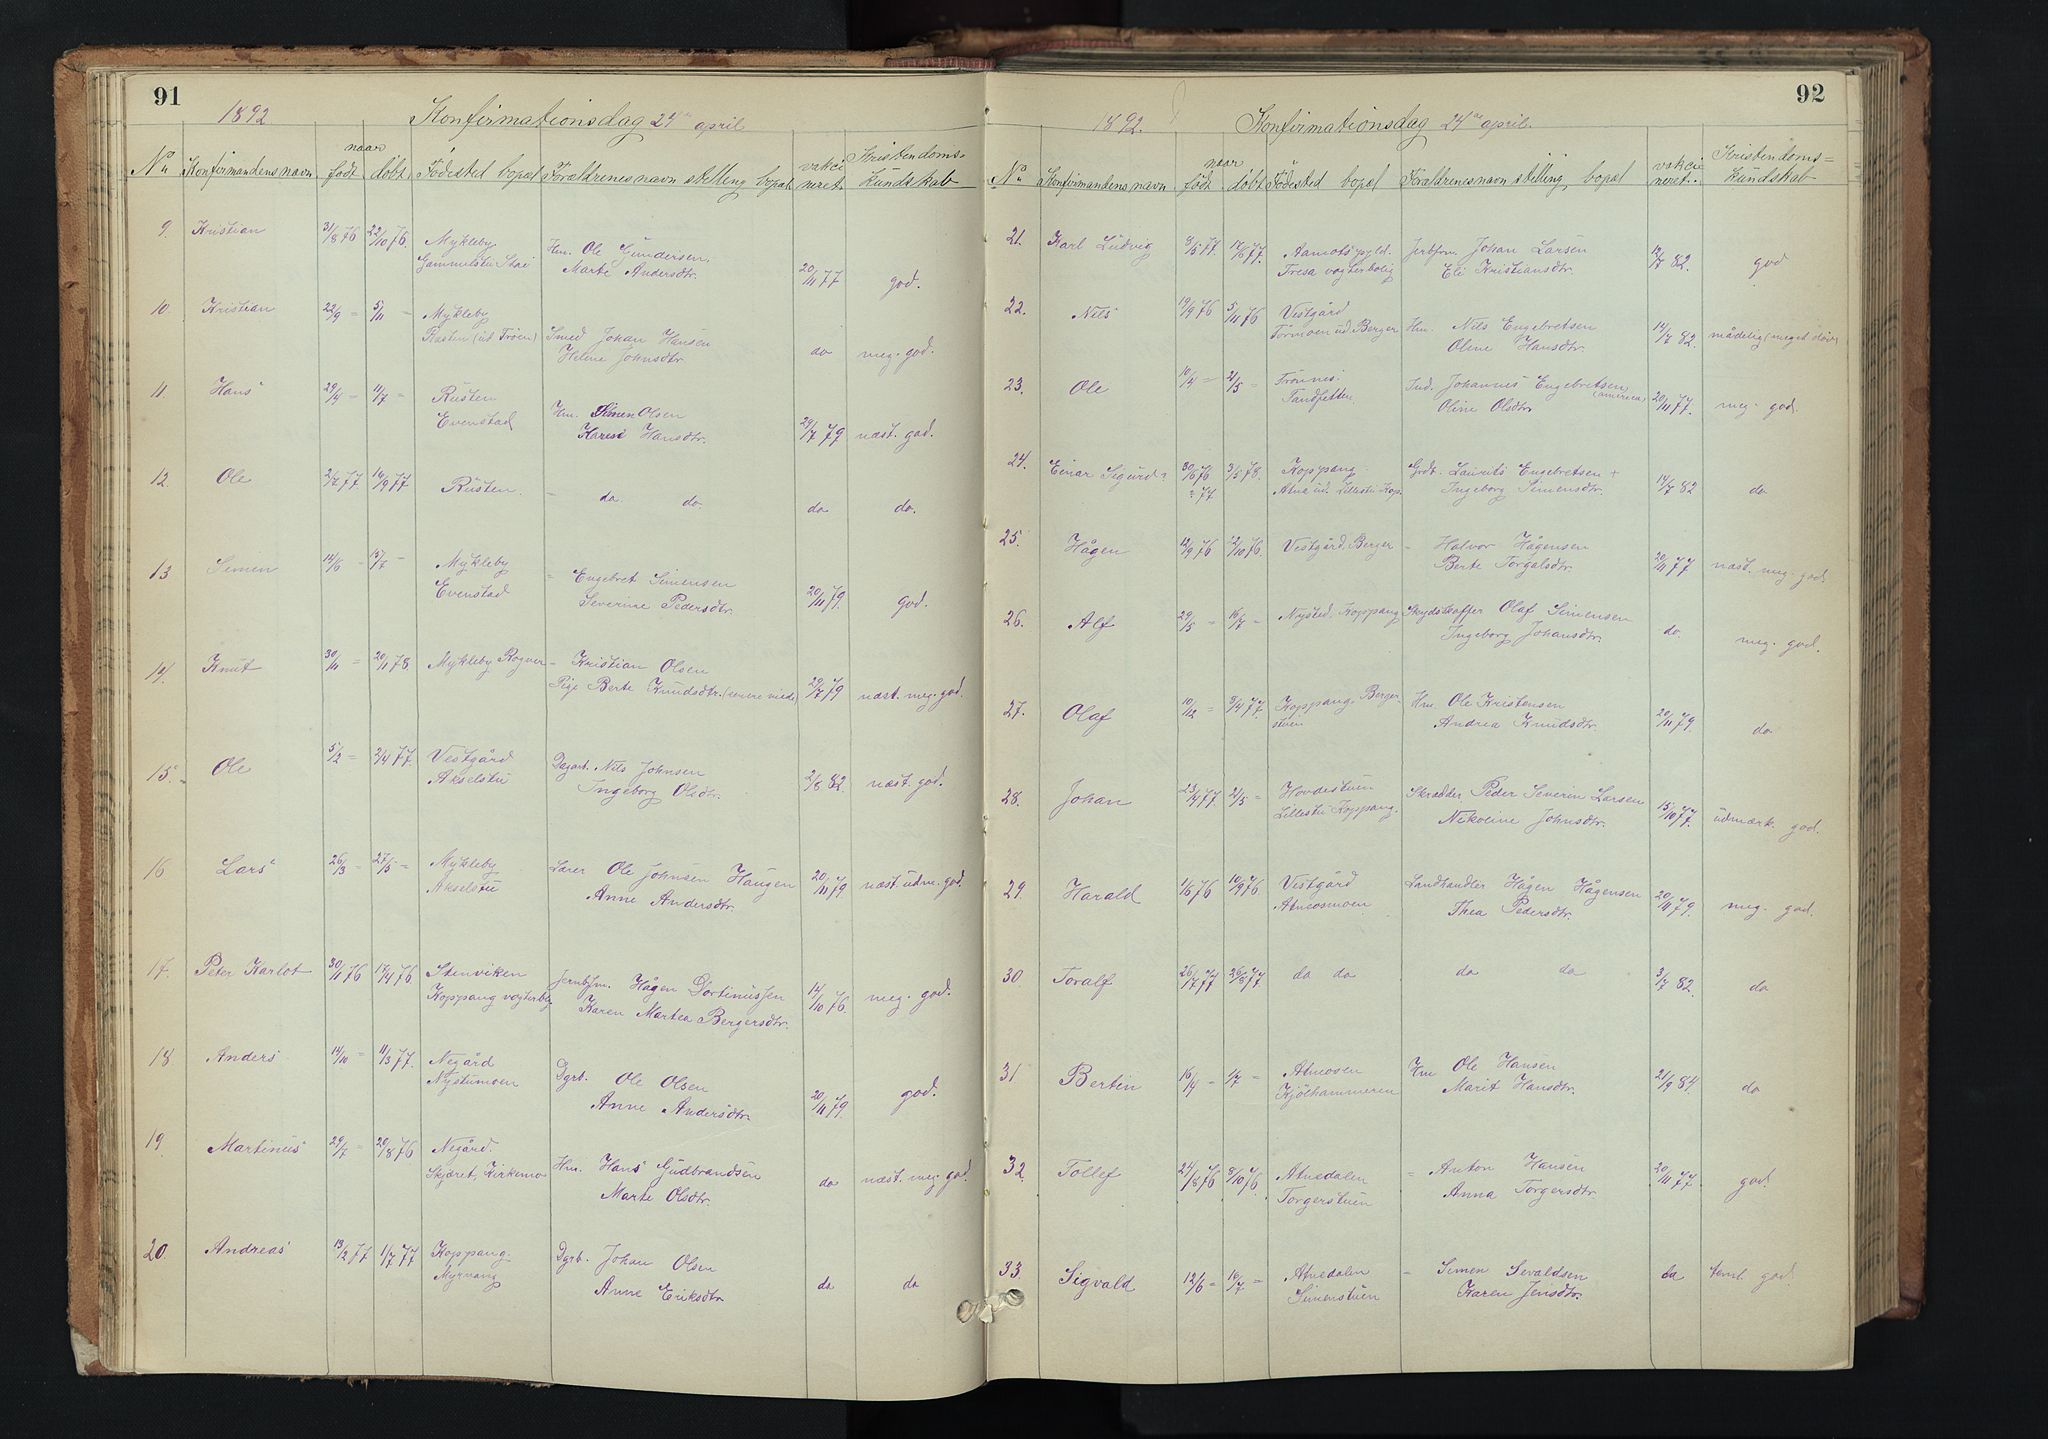 91
1892 Konfirmationsdag 24de april
naar
No Konfirmandens navn født døbt Fødested bopæl Forældrenes navn stilling bopæl vakci- Kristendoms-
neret. kundskab
9. Kristian 31/8 76 22/10 76. Mykleby Hm. Ole Gundersen,
Gammelstu Stai Marte Andersdtr. 20/11 77 god.
10. Kristian 22/9 = 5/11 = Mykleby
Rasten (ud Trøen) Smed Johan Hansen
Helene Johnsdtr. do meg. god.
11. Hans 29/4 = 11/7 = Rusten Hm. Simen Olsen
Evenstad Karen Hansdtr. 29/7 79 næst. god.
12. Ole 2/7 77. 16/9 77 Rusten. = do do. do do.
13 Simen 14/6 - 15/7 - Mykleby = Engebret Simensen
Evenstad Severine Pedersdtr. 20/11 79. god.
14 Knut 30/11 = 20/1 78 Mykleby = Kristian Olsen
Pige Berte Knudsdtr. 29/7 79 næst. meg. god.
15. Ole 5/2 = 2/4 77. Vestgård Dagarb. Nils Johnsen
Akselstu Ingeborg Olsdtr. 2/8 82. næst. god.
16 Lars 26/3 = 27/5 = Mykleby Lærer Ole Johnsen Haugen
Akselstu Anne Andersdtr. 20/11 79. næst. udm. god.
17. Peter Karlot 30/1 76 17/4 76. Stenviken Jernbfm. Hågen Dortinussen
Koppang vogterblg Karen Martea Bergersdtr. 14/10 76. meg. god.
18 Anders 14/10 = 11/3 77. Negård Dgrb. Ole Olsen
Nystumoen Anne Andersdtr. 20/11 79. god.
19. Martinus 29/7 = 20/8 76 Negård. Hm. Hans Gudbrandsen
Skjæret, Kirkemo Marte Olsdtr. do næst. meg. god.
20. Andreas 13/2 77 1/7 77 Koppang. Dgrb. Johan Olsen
Myrvang Anne Eriksdtr. do do
92
1892. Konfirmationsdag 24de april.
naar
No Konfirmandens navn født døbt Fødested bopæl Forældrenes navn stilling, bopæl vakci- Kristendoms=
neret. kundskab
21. Karl Ludvig 8/5 77. 17/6 77. Aamots pgld. Jerbfm. Johan Larsen
vogterbolig Eli Kristiansdtr. 12/7 82. god
22. Nils 19/9 76 5/11 76 Vestgård Hm. Nils Engebretsen
ud. Berger Oline Hansdtr. 14/7 82. mådelig (meget sløv)
23. Ole 16/4 = 21/5 = Frønnes. Ind. Johannes Engebretsen (america)
Oline Olsdtr. 20/11 77. meg. god.
24. Einar Sigurd 30/6 76 3/5 78. Koppang Grdt. Laurits Engebretsen +
? 77 Atna ud. Lillestu Kop. Ingeborg Simensdtr. 14/7 82 do
25. Hågen 12/9 76 22/10 76. Vestgård Berger = Halvor Hågensen
Berte Torgalsdtr. 20/11 77 næst. meg. god
26. Alf 29/5 = 16/7 = Nysted. Koppang Skydsskaffer Olaf Simensen
Ingeborg Johansdtr. do. meg. god.
27. Olaf 10/12 = 8/4 77. Koppang. Berger- Hm. Ole Kristensen
stuen Andrea Knudsdtr. 20/11 79. do
28. Johan 23/4 77. 21/5 = Hovdestuen Skræder. Peder Severin Larsen
Lillestu Koppang. Nikoline Johnsdtr. 15/10 77. udmærk. god.
29. Harald 1/6 76 10/9 76 Vestgård Landhandler Hågen Hågensen
Atneosmoen Thea Pedersdtr. 20/11 79. meg. god.
30 Toralf 26/7 77 26/8 77 do do do do 3/7 82. do
31 Bertin 16/4 = 1/7 = Atneosen Hm Ole Hansen
Kjølhammeren Marit Hansdtr. 21/9 84. do
32. Tollef 21/8 76 8/10 76. Atnedalen = Anton Hansen
Torgerstuen Anna Torgersdtr. 20/11 77. god.
33. Sigvald 12/6 = 16/7 = Atnedalen = Simen Sevaldsen
Simenstuen Karen Jensdtr. do teml. god.